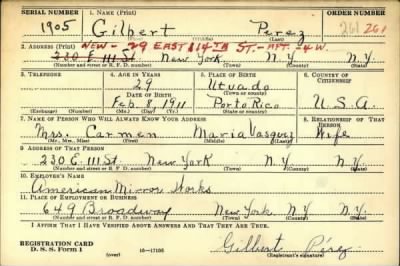 SERIAL NUMBER 1. NAME (Print) ORDER NUMBER
1905 Gilbert Perez 261 261
(First) (Middle) (Last)
2. ADDRESS (Print) NEW - 29 EAST 114TH ST. - APT. 4W.
230 E. 111 St. New York N.Y. N.Y.
(Number and street or R. F. D. number) (Town) (County) (State)
3. TELEPHONE 4. AGE IN YEARS 5. PLACE OF BIRTH 6. COUNTRY OF CITIZENSHIP
29 Utuado
DATE OF BIRTH (Town or county)
Feb. 8, 1911 Porto Rico U.S.A.
(Exchange) (Number) (Mo.) (Day) (Yr.) (State or country)
7. NAME OF PERSON WHO WILL ALWAYS KNOW YOUR ADDRESS 8. RELATIONSHIP OF THAT PERSON
Mrs. Carmen Maria Vasquez Wife
(Mr., Mrs., Miss) (First) (Middle) (Last)
9. ADDRESS OF THAT PERSON
230 E. 111 St. New York N.Y. N.Y.
(Number and street or R. F. D. number) (Town) (County) (State)
10. EMPLOYER'S NAME
American Mirror Works
11. PLACE OF EMPLOYMENT OR BUSINESS
649 Broadway New York N.Y. N.Y.
(Number and street or R. F. D. number) (Town) (County) (State)
I AFFIRM THAT I HAVE VERIFIED ABOVE ANSWERS AND THAT THEY ARE TRUE.
REGISTRATION CARD
D. S. S. FORM 1 (over) 16-17105 Gilbert Pérez
(Registrant's signature)